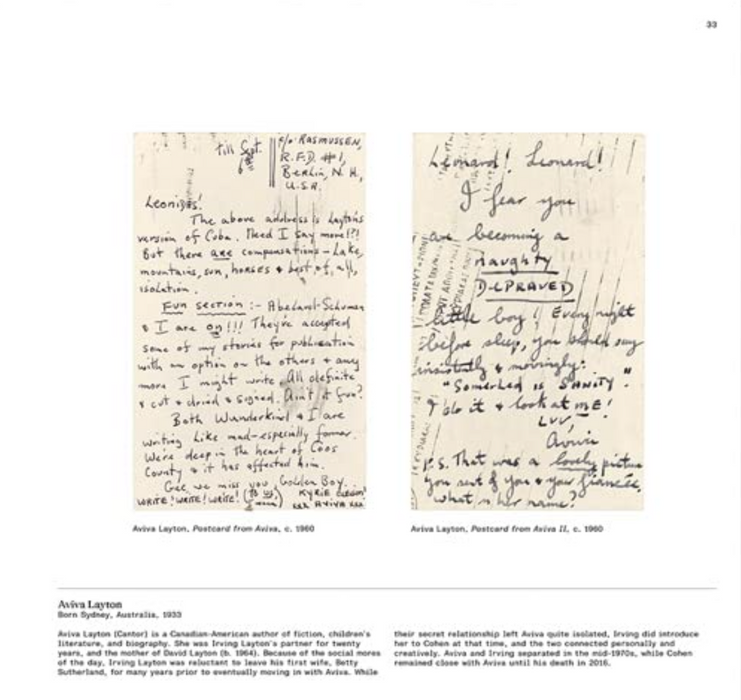 33
till Sept.
6th
c/o RASMUSSEN,
R.F.D. #1,
Berlin, N.H.,
U.S.A.
Leonides!
The above address is Layton's
version of Cuba. Need I say more!?!
But there are compensations – Lake,
mountains, sun, horses & best of all,
isolation.
Fun section :- Abelard-Schuman
& I are on!!! They've accepted
some of my stories for publication
with an option on the others & any
more I might write. All definite
& cut & dried & signed. Ain't it fun?
Both Wunderkind & I are
writing like mad – especially former.
We're deep in the heart of Coos
County & it has affected him.
Gee we miss you, Golden Boy.
WRITE! WRITE! WRITE! (to us, ) KYRIE
xxx AVIVA xxx
Leonard! Leonard!
I fear you
are becoming a
naughty
DEPRAVED
little boy! Every night
before sleep, you should say
insistently & movingly:
"Somerled is SANITY".
I do it & look at me!
LUV,
Aviva
P.S. That was a lovely picture
you sent of you & your fiancée.
what's her name?
Aviva Layton, Postcard from Aviva, c. 1960
Aviva Layton, Postcard from Aviva II, c. 1960
Aviva Layton
Born Sydney, Australia, 1933
Aviva Layton (Cantor) is a Canadian-American author of fiction, children's
literature, and biography. She was Irving Layton's partner for twenty
years, and the mother of David Layton (b. 1964). Because of the social mores
of the day, Irving Layton was reluctant to leave his first wife, Betty
Sutherland, for many years prior to eventually moving in with Aviva. While
their secret relationship left Aviva quite isolated, Irving did introduce
her to Cohen at that time, and the two connected personally and
creatively. Aviva and Irving separated in the mid-1970s, while Cohen
remained close with Aviva until his death in 2016.